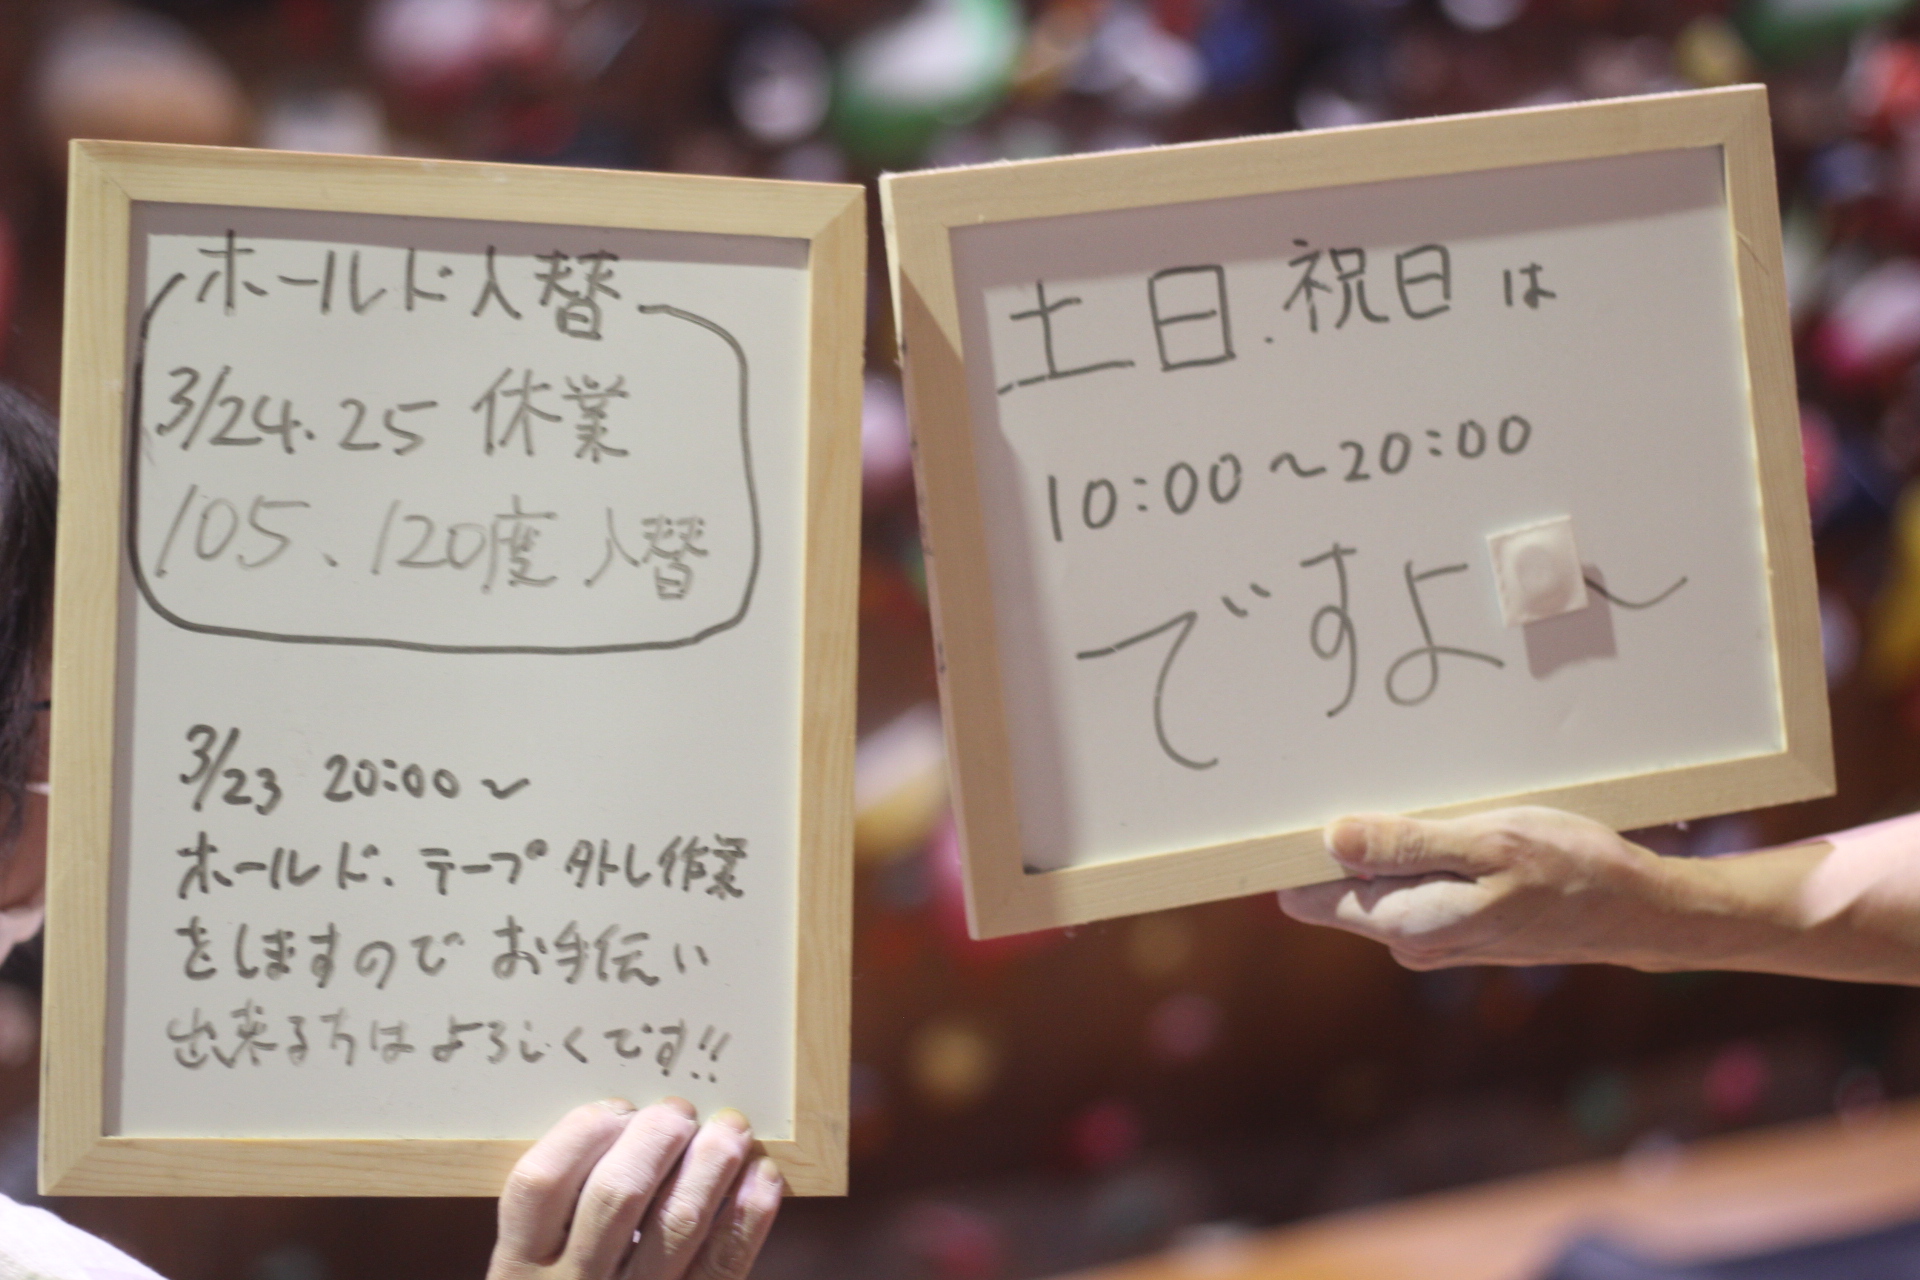 ホールド入替
3/24.25 休業
105、120度入替
3/23 20:00〜
ホールド、テープ外し作業
をしますので お手伝い
出来る方は よろしくです!!
土日.祝日は
10:00〜20:00
ですよ〜